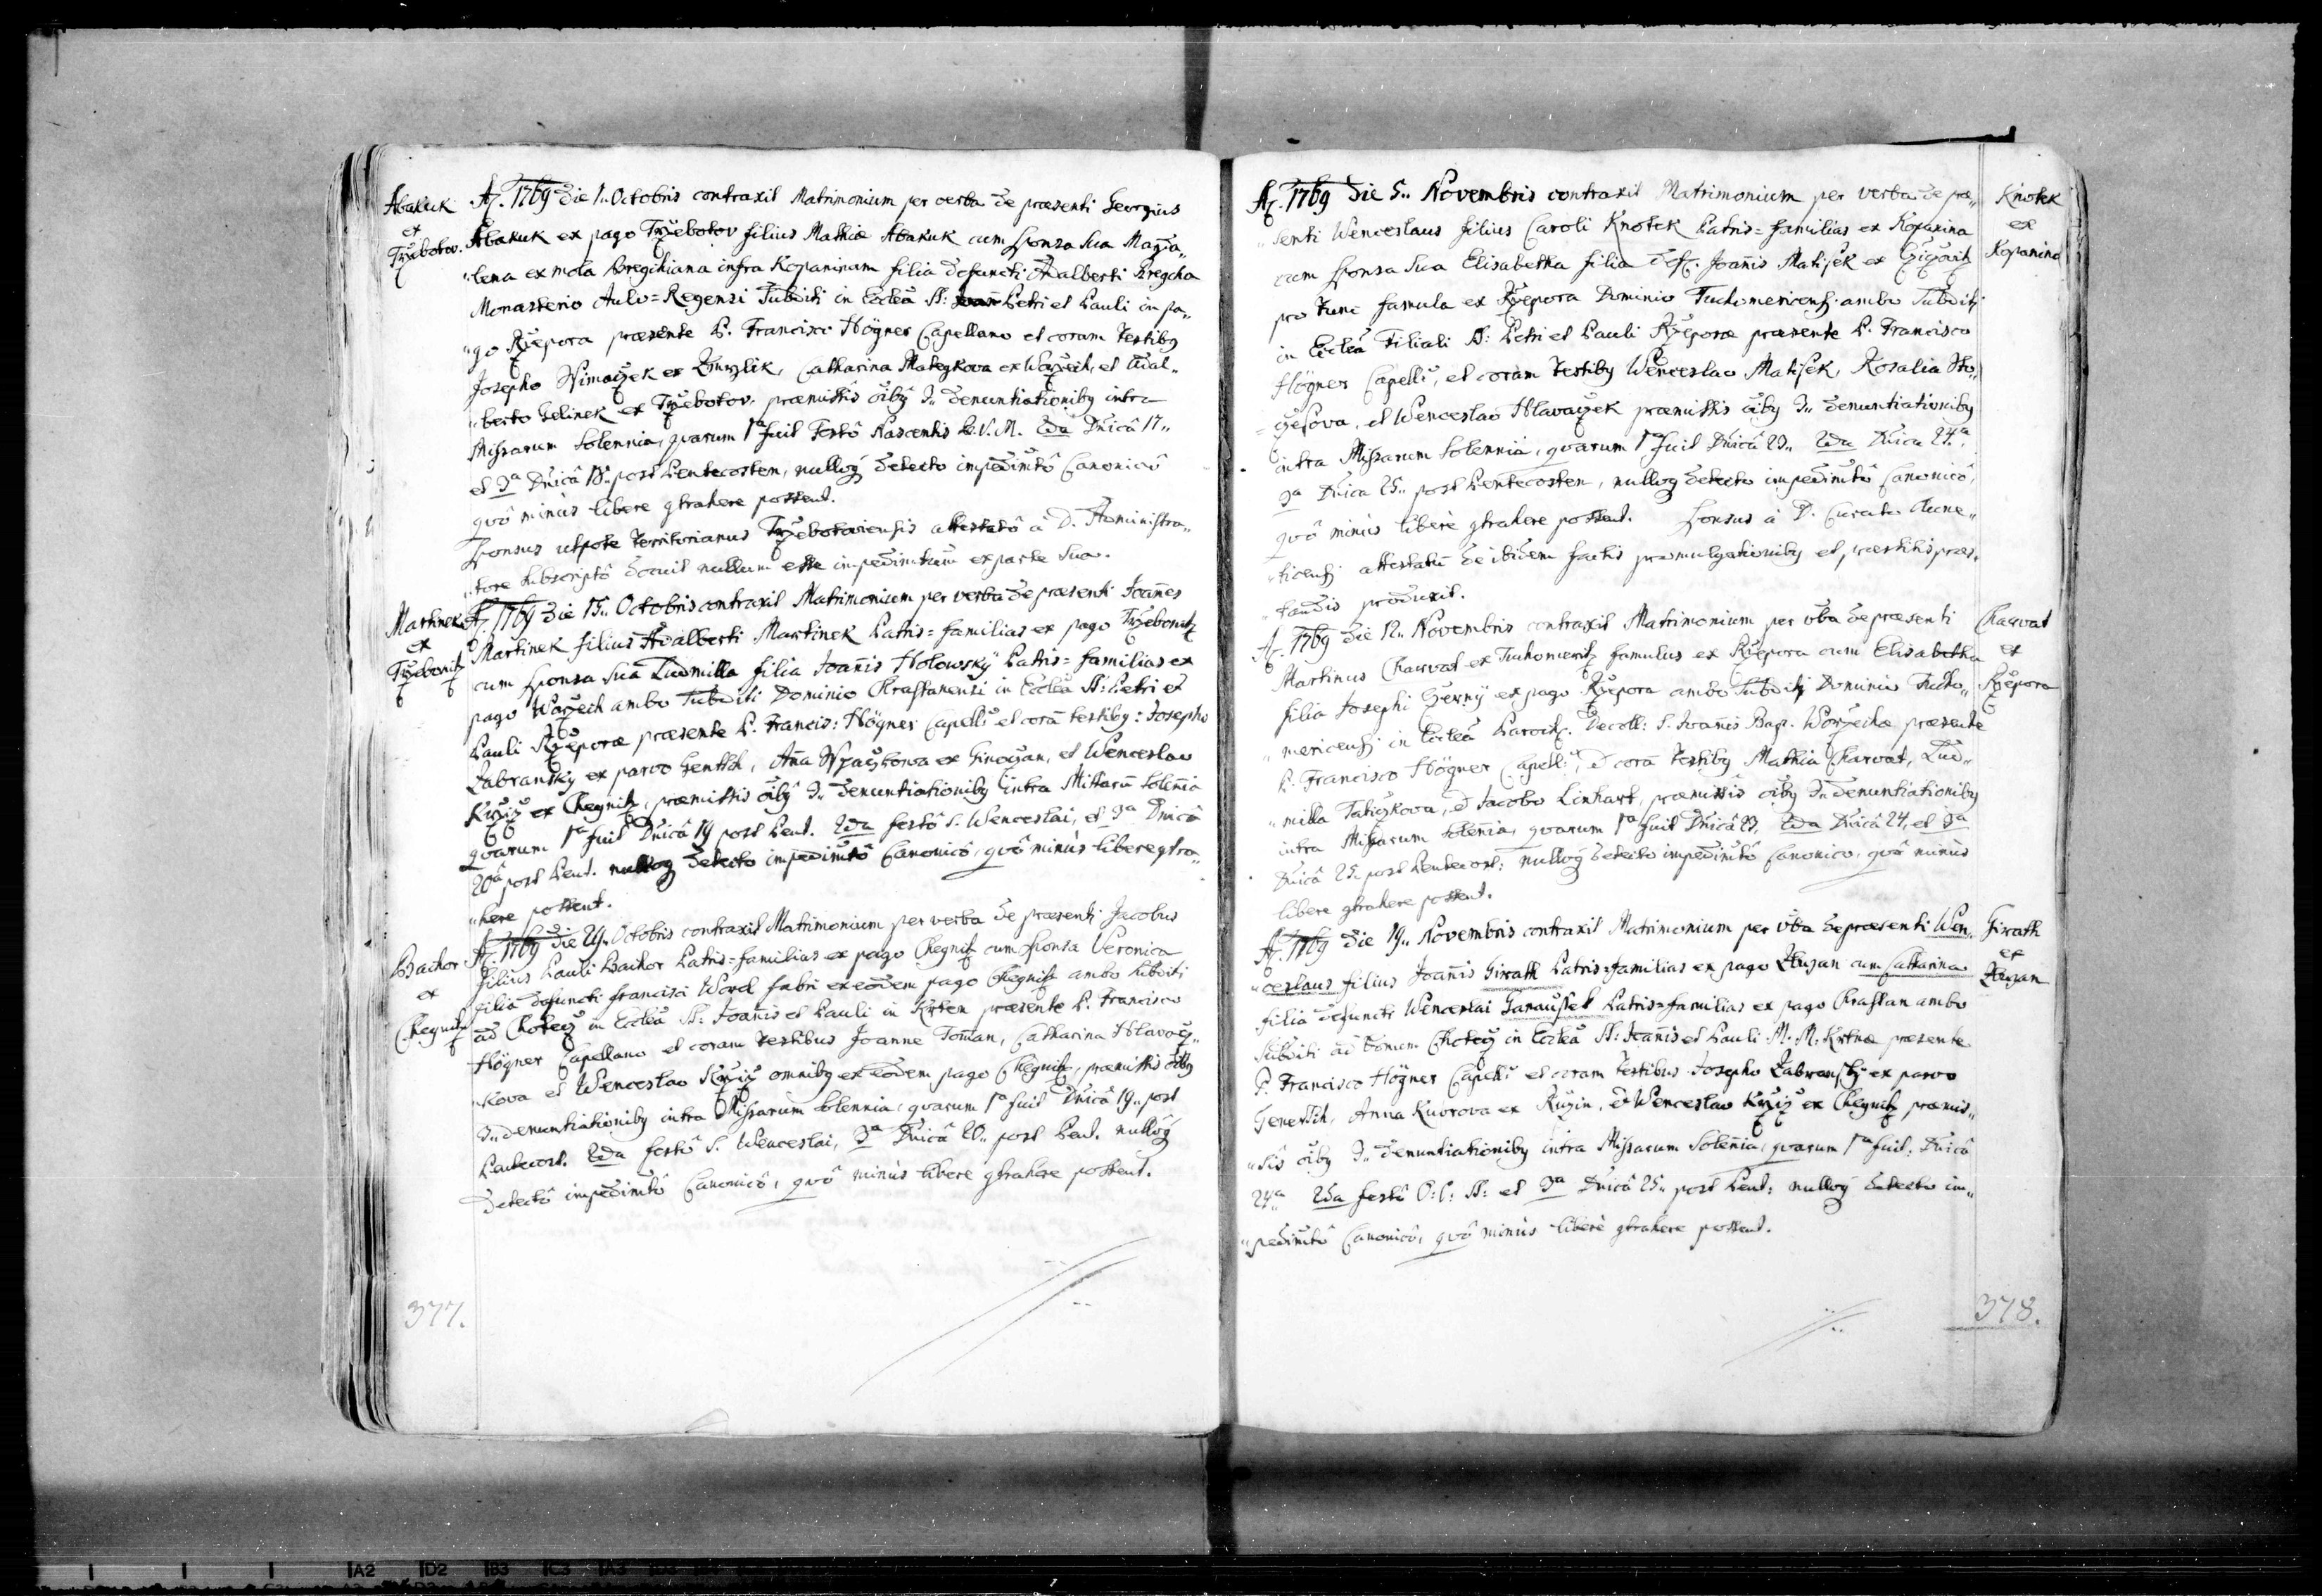 Abakuk
ex
Trzebotov.
A. 1769 die 1. Octobris contraxit Matrimonium per verba de præsenti Georgius
Abakuk ex pago Trzebotov filius Mathiæ Abakuk cum sponsa sua Magda„
„lena ex mola infra Kopaninam filia defuncti Adalberti
Monasterio Aulæ=Regensi Subditi in Ecclâ SS: Petri et Pauli in pa„
„go Rzepora præsente P. Francisco Högner Capellano et coram testibq
Josepho Ssimaczek ex Zmrzlik, Catharina Mategkova ex Worzech, et Adal„
„berto Gelinek ex Trzebotov. præmissis oibq 3. denuntiationibq intra
Missarum solennia, quarum 1a fuit Festô Nascentis B.V.M. 2da Dnicâ 17..
et 3a Dnicâ 18.. post Pentecosten, nulloq detecto impedimtô Canonicô
quô minùs libere gtrahere possent.
Sponsus utpote territorianus Trzebotoviensis attestatô à D. Administra„
„tore subscriptô docuit nullum esse impedimtum ex parte sua.
Martinek
ex
Trzebonitz
A. 1769 die 15.. Octobris contraxit Matrimonium per verba de præsenti Joañes
Martinek filius Adalberti Martinek Patris=familias ex pago Trzebonitz
cum sponsa suâ Ludmilla filia Joañis Holowsky Patris=familias ex
pago Worzech ambo Subditi Dominio Chrastanensi in Ecclâ SS: Petri et
Pauli Rzeporæ præsente P. Francis: Högner Capell: et corã testibq: Josepho
Zabransky ex parvo Gentsch, Aña ex Ginoczan, et Wenceslao
Krziz ex Chegnitz, præmissis oibq 3.. denuntiationibq intra Missarũ solenia
quarum 1a fuit Dnicâ 19 post Pent. 2da festô S. Wenceslai, et 3a Dnicâ
20â post Pent. nulloq detecto impedimtô Canonicô, quô minùs libere gtra„
„here possent.
Bachor
ex
Chegnitz
A. 1769 die 29.. Octobris contraxit Matrimonium per verba de præsenti Jacobus
filius Pauli Bachor Patris=familias ex pago Chegnitz cum sponsa Veronica
filia defuncti Francisci Worel fabri ex eodem pago Chegnitz ambo subditi
ad Chotecz in Ecclâ SS: Joañis et Pauli in Krten præsente P. Francisco
Högner Capellano et coram testibus Joanne Toman, Catharina Hlavacz„
„kova et Wenceslao Krziz omnibq ex eodem pago Chegnitz, præmissis oibq
3.. denuntiationibq intra Missarum solennia, quarum 1a fuit Dnicâ 19.. post
Pentecost. 2da festô S. Wenceslai, 3a Dnicâ 20.. post Pent. nulloq
detectô impedimtô Canonicô, quô minùs libere gtrahere possent.
377.
A. 1769 die 5.. Novembris contraxit Matrimonium per verba de præ„
„senti Wenceslaus filius Caroli Knotek Patris=familias ex Kopanina
cum sponsa sua Elisabetha filia def. Joañis Matissek ex
pro tunc famula ex Rzepora Dominio Tuchomericens. ambo Subditi
in Ecclâ Filiali SS: Petri et Pauli Rzeporæ præsente P. Francisco
Högner Capell:, et coram testibq Wenceslao Matissek, Rosalia
, et Wenceslao Hlavaczek præmissis oibq 3.. denuntiationibq
intra Missarum solennia, quarum 1a fuit Dnicâ 23.. 2da Dnica 24.a
3a Dnica 25.. post Pentecosten, nulloq detecto impedimtô Canonicô,
quô minùs liberè gtrahere possent. Sponsus à D. Curato Aune„
„ticensi attestatũ de ibidem factis promulgationibq et præstitis præs„
„tandis produxit.
Knotek
ex
Kopanina
A. 1769 die 12.. Novembris contraxit Matrimonium per vba de præsenti
Martinus Charvat ex Tuchomeritz famulus ex Rzepora cum Elisabetha
filia Josephi Czerny ex pago Rzepora ambo Subditi Dominio Tucho„
„mericensi in Ecclâ Paroch. Decoll: S. Joañis Bapt. Worzechæ præsente
P. Francisco Högner Capell:, et corã testibq Mathia Charvat, Lud„
„milla Taticzkova, et Jacobo Linhart, præmissis oibq 3.. denuntiationibq
intra Missarum solennia, quarum 1a fuit Dnicâ 23, 2da Dnicâ 24, et 3a
Dnicâ 25 post Pentecost: nulloq detecto impedimtô Canonico, quô minùs
libere gtrahere possent.
Charvat
ex
Rzepora
A. 1769 die 19.. Novembris contraxit Matrimonium per vba de præsenti Wen„
„ceslaus filius Joañis Girath Patris=familias ex pago Zbuzan cum Catharina
filia defuncti Wenceslai Janaussek Patris=familias ex pago Chrastan ambo
Subditi ad Domin: Chotecz in Ecclâ SS: Joañis et Pauli M.M. Krtnæ præsente
P. Francisco Högner Capell: et coram testibus Josepho Zabransky ex parvo
Genersch, Anna Kuorova ex Ruzin, et Wenceslao Krziz ex Chegnitz præmis„
„sis oibq 3.. denuntiationibq intra Missarum Solennia, quarum 1a fuit Dnicâ
24a 2da festô O: SS: et 3a Dnicâ 25.. post Pent: nulloq detecto im„
„pedimtô Canonicô, quô minùs liberè gtrahere possent.
Girath
ex
Zbuzan
378.